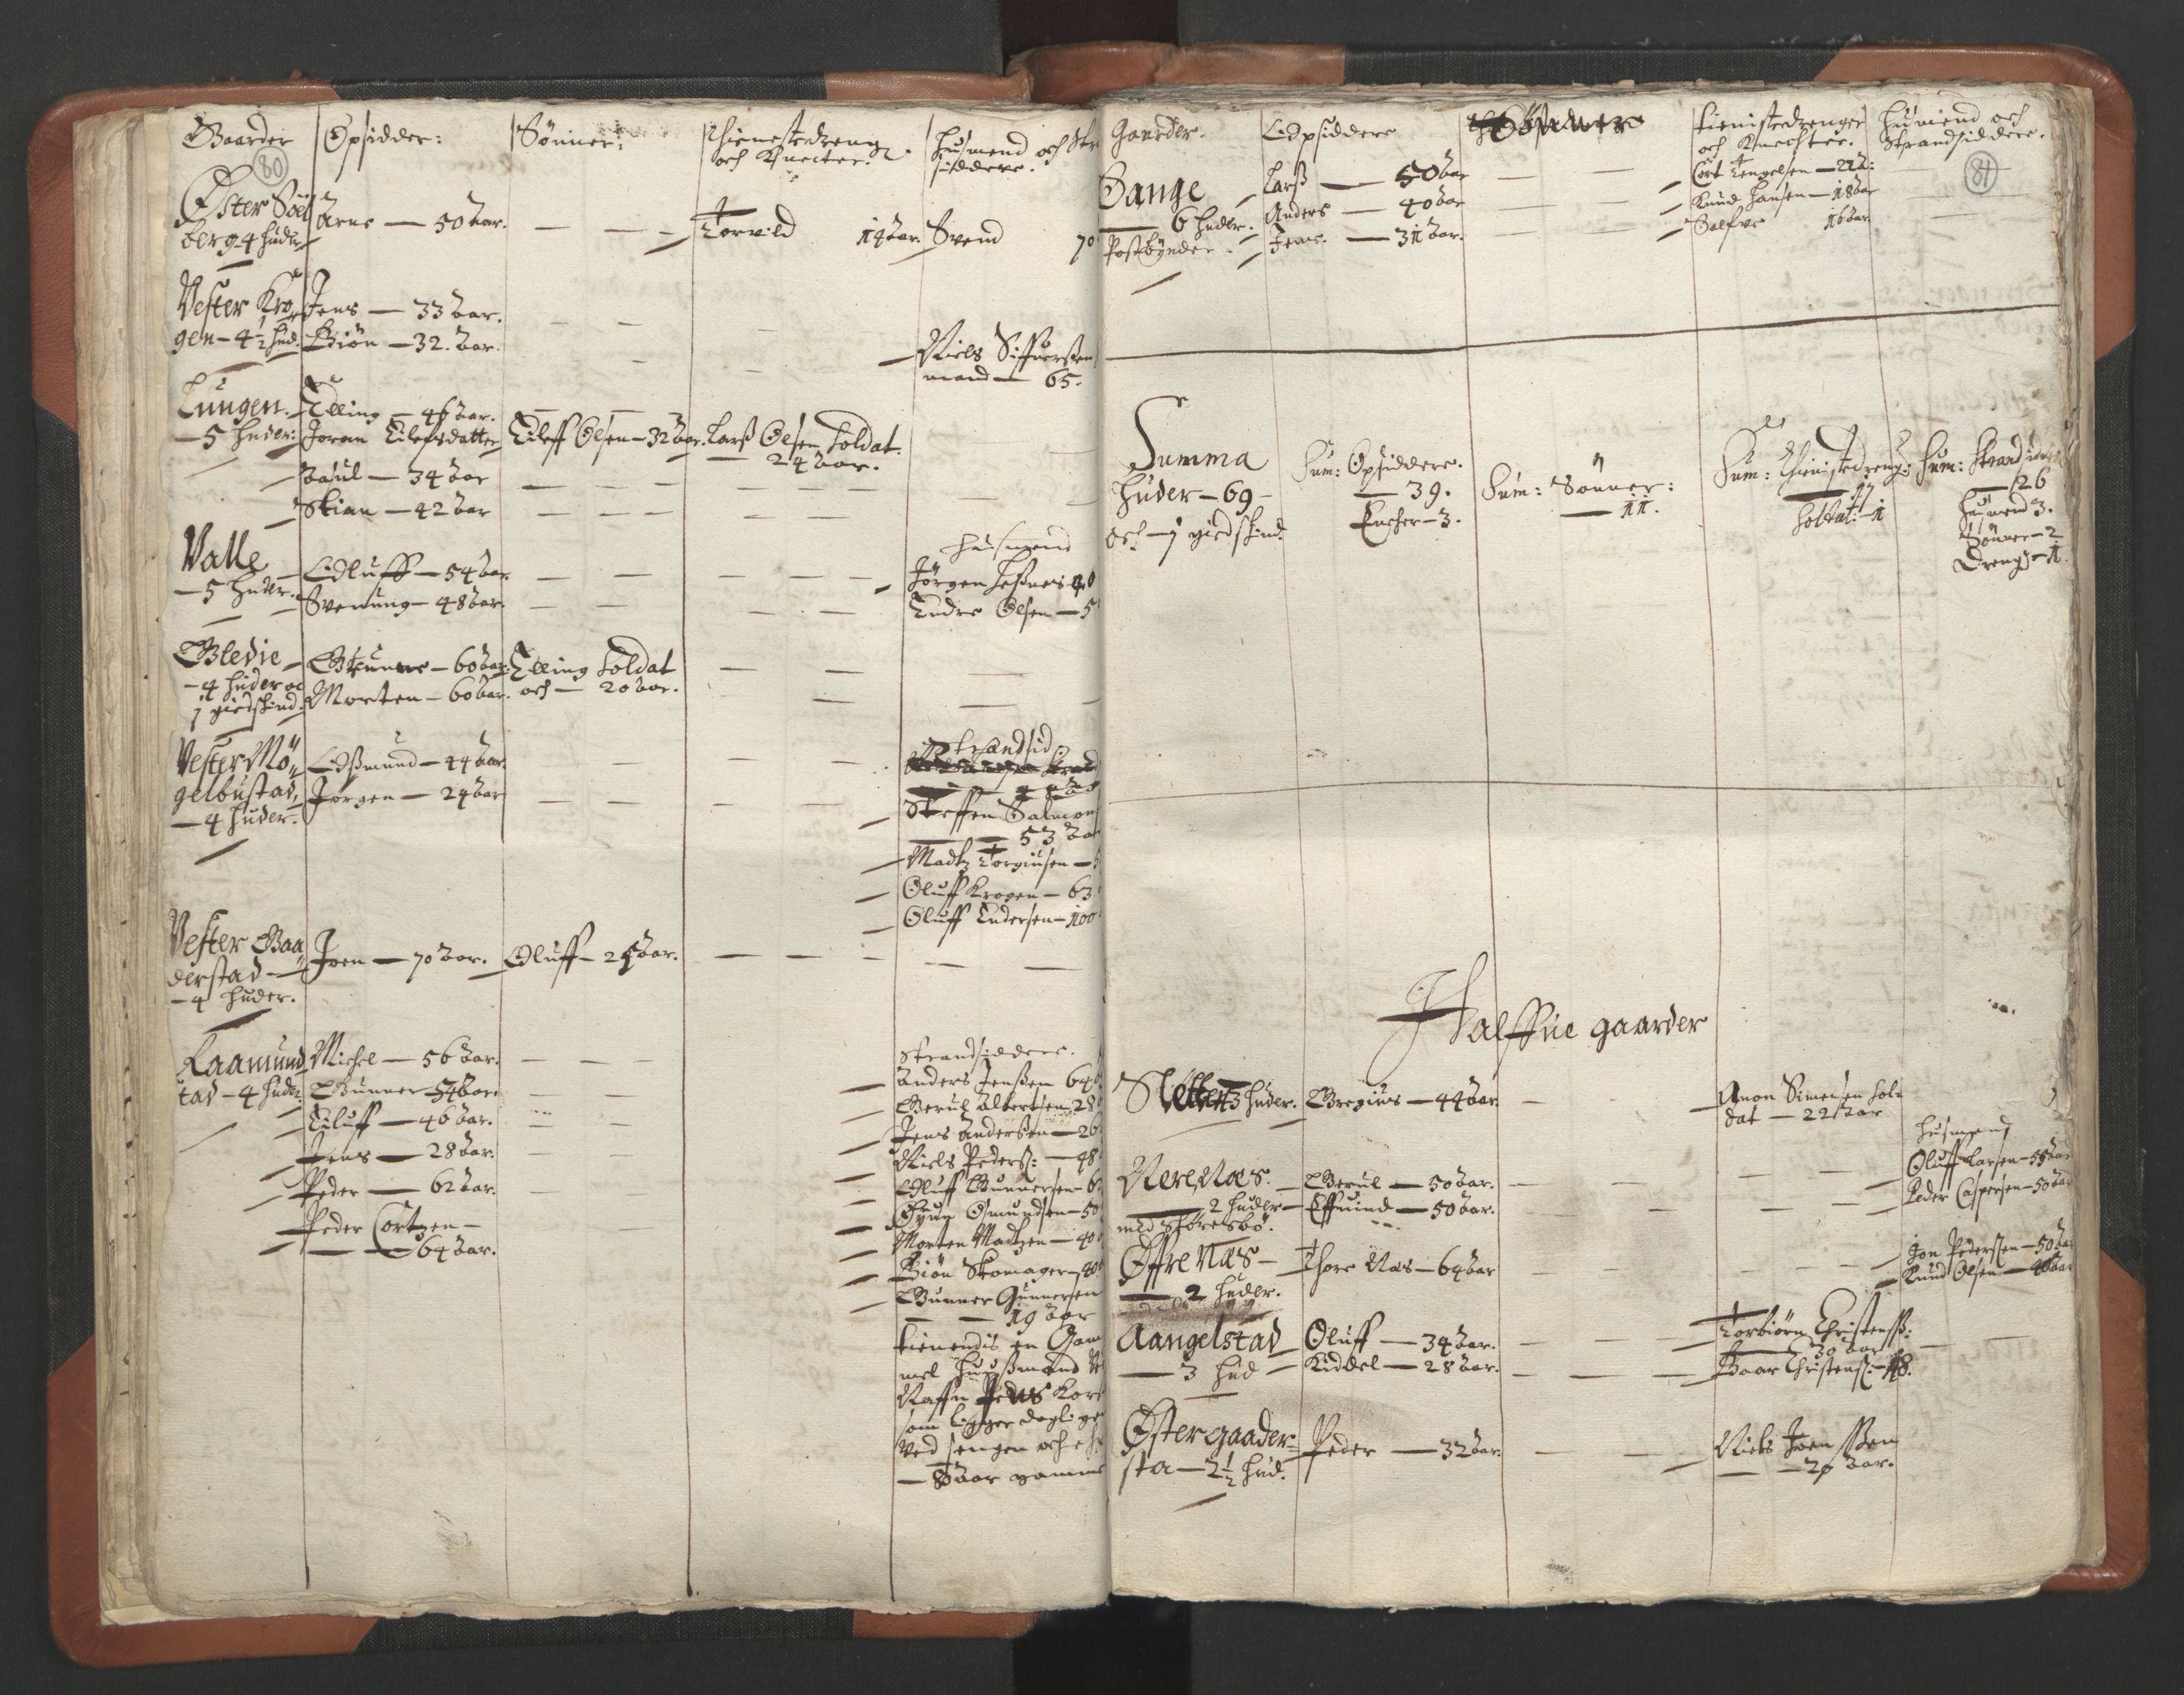 Gaarder
Opsidder:
Sönner:
Thienestedreng
och Knecter.
Husmend och Str
siddere.
80
Öster Söel
berg 4 huder
Arne — 50 aar.
Torvild 14 aar.
Svend 70
Vester Kro
gen — 4½ hud.
Jens — 33 aar.
Biön — 32 aar.
Niels Siffuersen
mand — 65.
Lungen
— 5 huder:
Elling — 46 aar.
Joran Eilefsdatter
Eileff Olsen — 32 aar.
Larss Olsen Soldat
24 aar.
Aasul — 34 aar
Stian — 42 aar
Valle
— 5 huder.
Oluff — 54 aar.
Svenung — 48 aar.
husmend
Jörgen
Endre Olsen — 5
Gledie
— 4 huder oc
1 giedskind.
Gunner — 60 aar.
Morten — 60 aar.
Elling Soldat
och — 20 aar.
Vester Mö
gelbustad,
— 4 huder.
Osmund — 44 aar
Jörgen — 24 aar
Strandsid
Steffen Salmons
— 53 aar
Madtz Torgiusen — 5
Oluff Krogen — 63
Oluff Endersen — 100
Vester Gaa
derstad
— 4 huder.
Joen — 70 aar.
Oluff — 24 aar.
Raamund
stad — 4 huder
Michel — 56 aar.
Gunner — 54 aar
Eiluff — 46 aar.
Jens — 28 aar.
Peder — 62 aar.
Peder Cortzen —
— 64 aar.
Strandsiddere.
Anders Jenssen 64
Gerul Albertsen 28
Jens Andersen — 26
Niels Peders: — 48
Oluff Gunnersen — 6
Öyun Osmundsen — 50
Morten Madtzen — 40
Biön Skomager — 40
Gunner Gunnersen
— 19 aar
tienendis en Gam
mel Huussmand
Naffn Jens
som ligger daglige
ved sengen och
— 80 aar gamme
Gaarder.
Opsiddere
Sönner
tienistedrenger
och Knechter.
Husmend och
Strandsiddere.
81
Sange
6 huder.
Postbönder.
Larss — 50 aar
Anders — 40 aar
Jens — 31 aar.
Cort Engelsen — 22:
Knud Hansen — 18 aar
Salfue 16 aar
Summa
Huder — 69 —
och — 1 giedskind
Sum: Opsiddere.
— 39.
Encher — 3.
Sum: Sönner:
— 11.
Sum: Thienistedreng:
— 17
Soldat: 1
Sum: Strandsidder
— 26
Husmend 3.
Sönner — 2
Dreng — 1.
Halffue gaarder
Slettet 3 huder.
Gregius — 44 aar.
Anon Simensen Sol=
dat — 22 aar
Nere Næs.
— 2 huder
med
Gerul — 50 aar.
Effuind — 50 aar.
husmend
Oluff Larsen — 55 aar
Peder Caspersen — 50 aar
Öffre Næs —
— 2 huder.
Thore Næs — 64 aar
Jon Pederssen — 50 aar
Knud Olsen — 40 aar
Aangelstad
— 3 hud —
Oluff — 34 aar.
Kiddel — 28 aar.
Torbiörn Christenss:
— 30 aar
Baar Christens: — 18.
Öster gaader=
sta — 2½ hud.
Peder — 32 aar.
Niels Joenssen
— 20 aar.